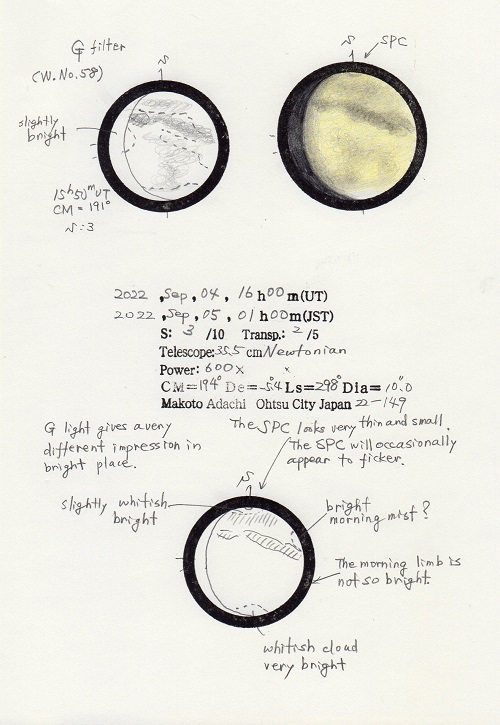 G filter
(W.No.58)
S
SPC
slightly
bright
15h50m UT
CM = 191°
S:3
2022 , Sep , 04 , 16 h00 m(UT)
2022 , Sep , 05 , 01 h00 m(JST)
S: 3 /10 Transp.: 2 /5
Telescope: 35.5 cm Newtonian
Power: 600x
CM=194° De=-5.4° Ls=298° Dia= 10".0
Makoto Adachi Ohtsu City Japan 22-149
G light gives a very
different impression in
bright place.
The SPC looks very thin and small.
The SPC will occasionally
appear to ficker.
S
slightly whitish
bright
bright
morning mist?
The morning limb is
not so bright.
whitish cloud
very bright